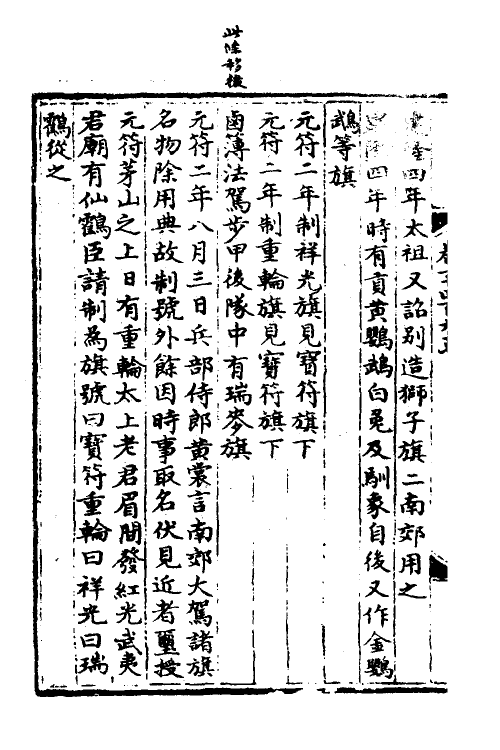 此條移後
四年太祖又詔別造獅子旗二南郊用之
四年時有貢黃鸚鵡白兔及馴象自後又作金鸚
鵡等旗
元符二年制祥光旗見寶符旗下
元符二年制重輪旗見寶符旗下
鹵簿法駕步甲後隊中有瑞麥旗
元符二年八月三日兵部侍郎黃裳言南郊大駕諸旗
名物除用典故制號外餘因時事取名伏見近者璽授
元符茅山之上日有重輪太上老君眉間發紅光武夷
君廟有仙鶴臣請制為旗號曰寶符重輪曰祥光曰瑞
鶴從之